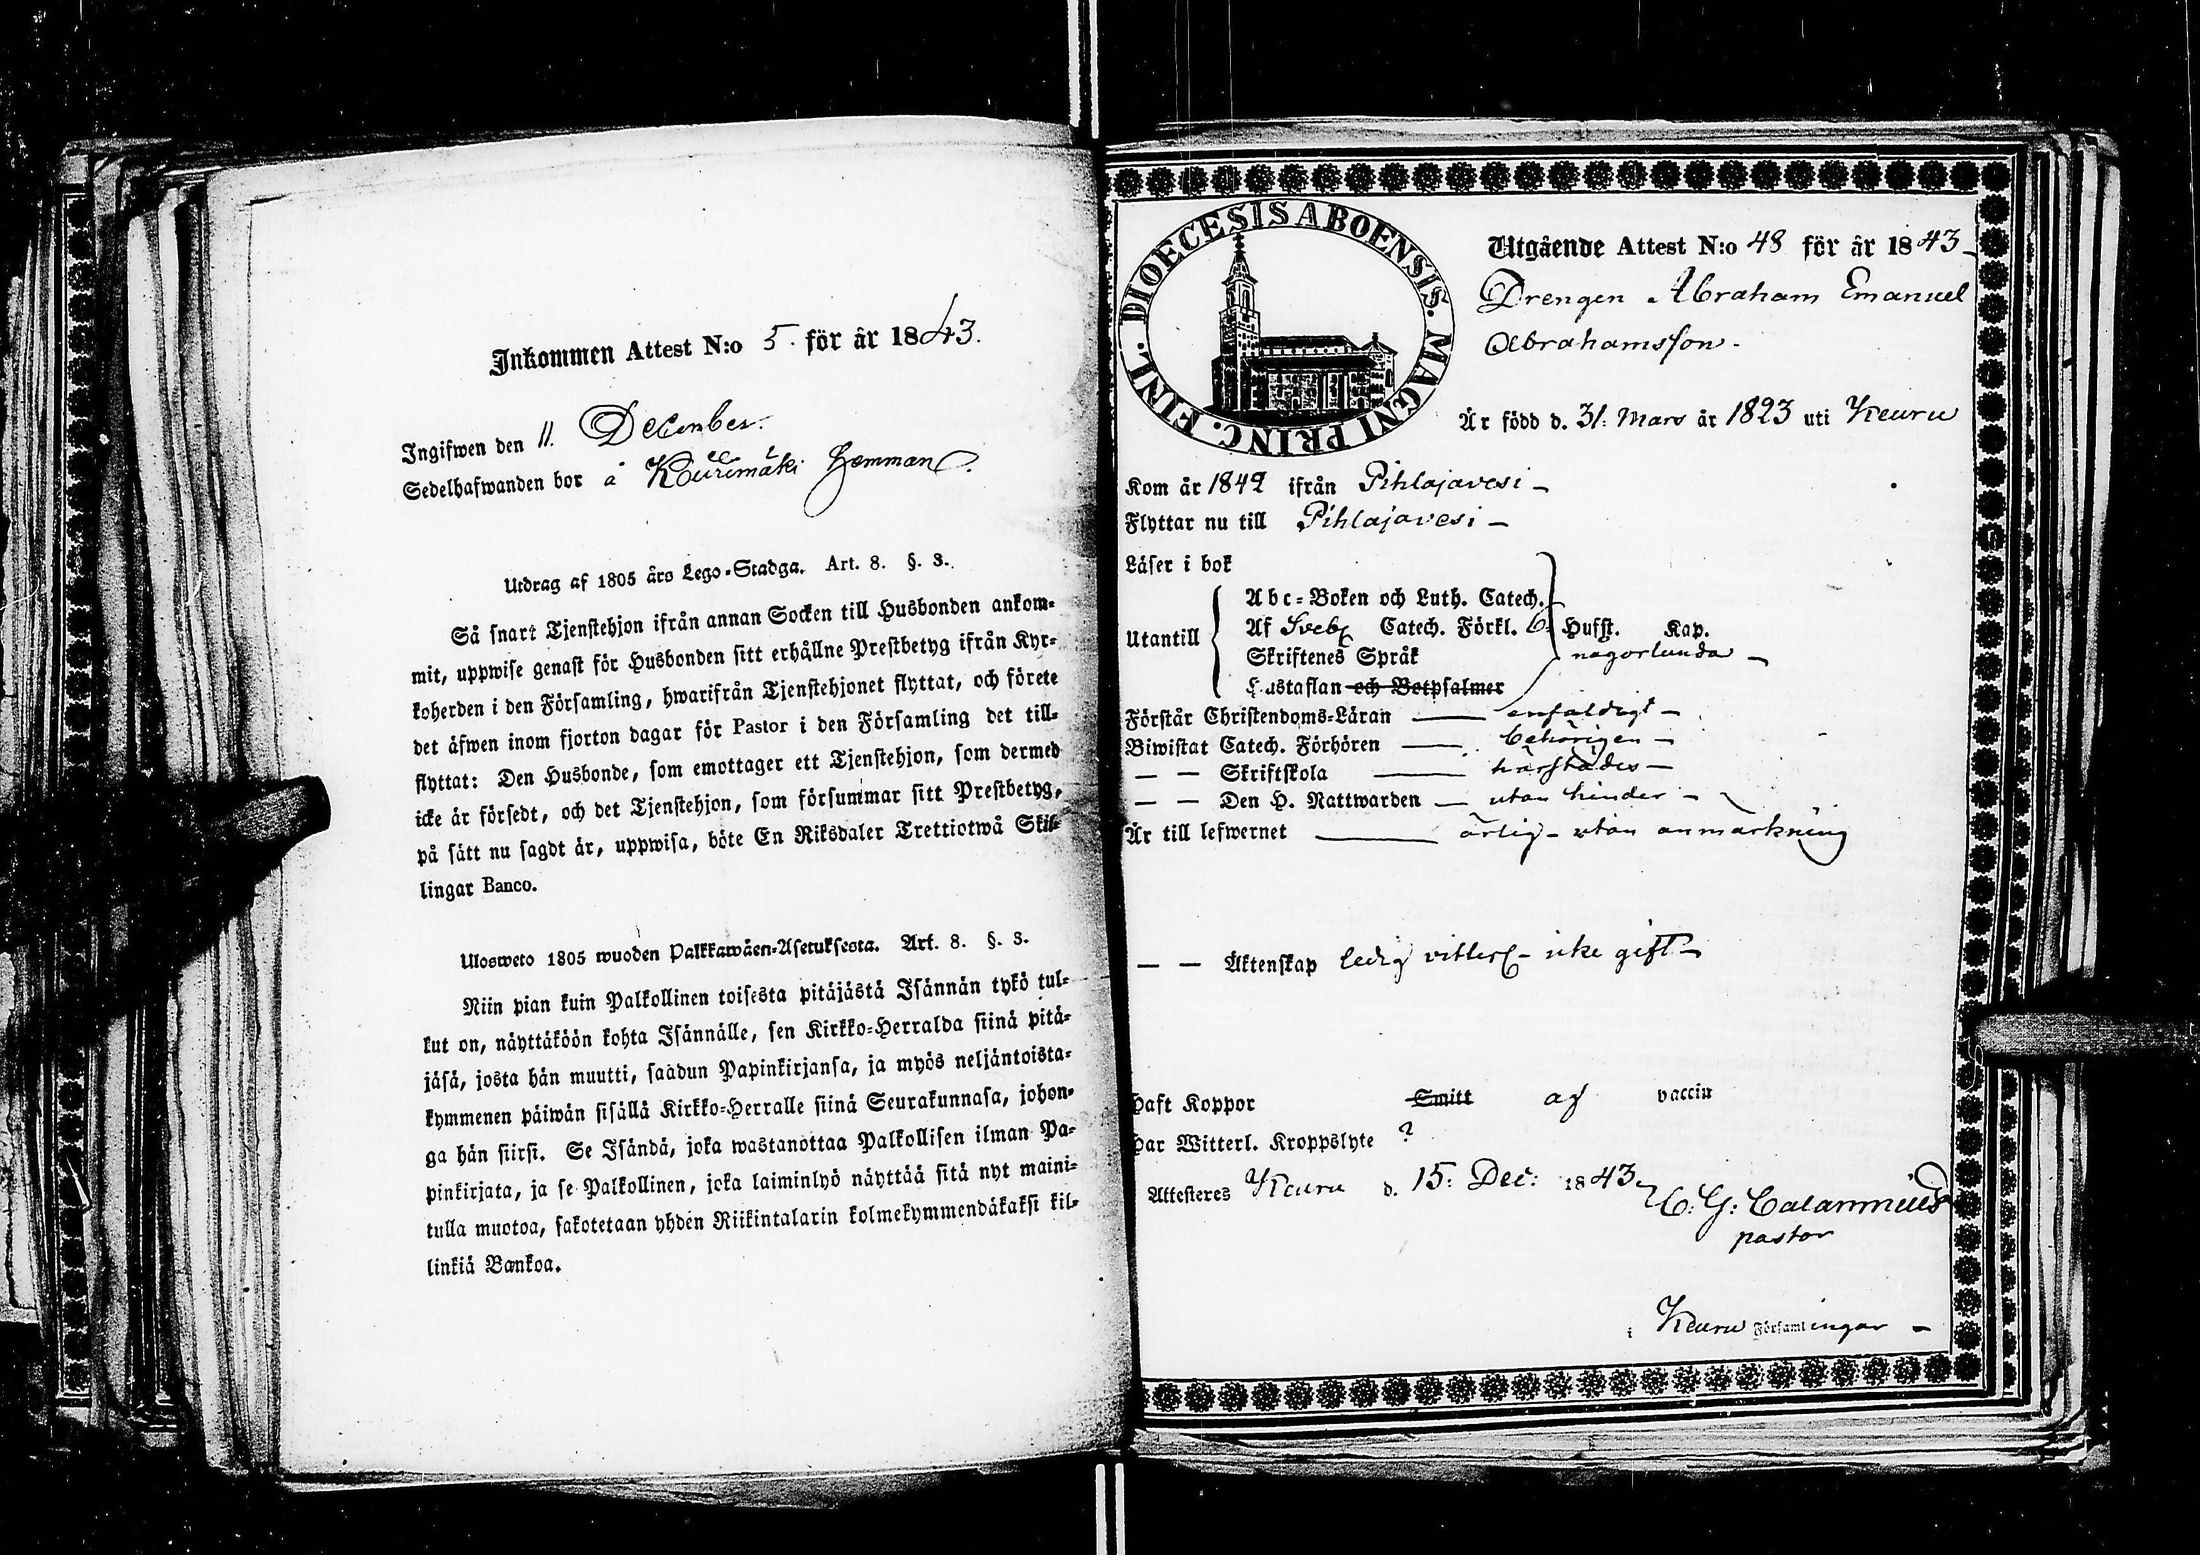 Inkommen Attest N:o 5. för år 1843.
Ingifwen den 11. December.
Sedelhafwanden bor å Hemman.
Utdrag af 1805 års Lego-Stadga. Art. 8. §. 3.
Så snart Tjenstehjon ifrån annan Socken till Husbonden ankom-
mit, uppwise genast för Husbonden sitt erhållne Prestbetyg ifrån Kyr-
koherden i den Församling, hwarifrån Tjenstehjonet flyttat, och förete
det äfwen inom fjorton dagar för Pastor i den Församling det till-
flyttat: Den Husbonde, som emottager ett Tjenstehjon, som dermed
icke är försedt, och det Tjenstehjon, som försummar sitt Prestbetyg,
på sätt nu sagdt är, uppwisa, böte En Riksdaler Trettiotwå Skil-
lingar Banco.
Ulosweto 1805 wuoden Palkkawäen-Asetuksesta. Art. 8. §. 3.
Niin pian kuin Palkollinen toisesta pitäjästä Isännän tykö tul-
kut on, näyttäköön kohta Isännälle, sen Kirkko-Herralda siinä pitä-
jäsä, josta hän muutti, saadun Papinkirjansa, ja myös neljäntoista-
kymmenen päiwän sisällä Kirkko-Herralle siinä Seurakunnasa, johon-
ga hän siirsi. Se Isändä, joka wastanottaa Palkollisen ilman Pa-
pinkirjata, ja se Palkollinen, joka laiminlyö näyttää sitä nyt maini-
tulla muotoa, sakotetaan yhden Riikintalarin kolmekymmendäkaksi kil-
linkiä Bankoa.
DIOECESIS ABOENSIS. MAGNI PRINC. FINL.
Utgående Attest N:o 48 för år 1843-
Drengen Abraham Emanuel
Abrahamsson.
Är född d. 31. Mars år 1823 uti Keuru
Kom år 1842 ifrån Pihlajavesi -
Flyttar nu till Pihlajavesi -
Läser i bok
Abc-Boken och Luth. Catech.
Utantill Af Sveb Catech. Förkl. 6. Hufst. Kap.
Skriftenes Språk någorlunda -
Hustaflan och Botpsalmer
Förstår Christendoms-Läran enfaldigt -
Biwistat Catech. Förhören behörigen -
— — Skriftskola härstädes -
— — Den H. Nattwarden - utan hinder -
Är till lefwernet ärlig - utan anmärkning
— — Äktenskap ledig - icke gift -
Haft Koppor Smitt af vaccin
Har Witterl. Kroppslyte ?
Attesteres Keuru d. 15. Dec: 1843
C. G. Calamnius
pastor
i Keuru Församlingar -